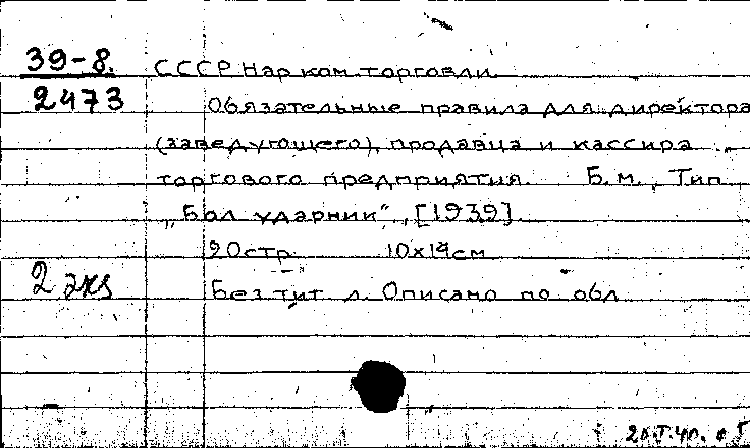 39-8.
2473
СССР Нар ком. торговли.
Обязательные правила для директора
(заведующего), продавца и кассира
торгового предприятия. Б.м., Тип
„Бол ударник“, [1939].
20стр. 10x14см
2 экз
Без тит л. Описано по обл